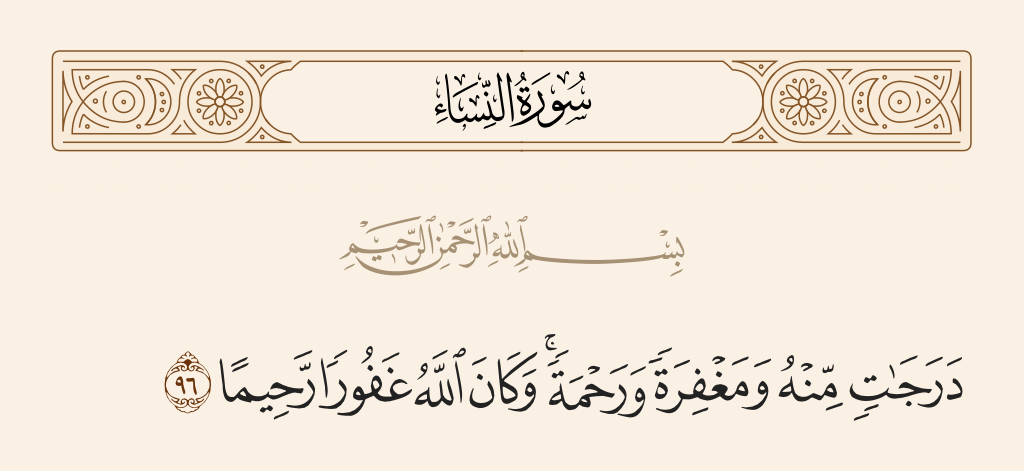 سُورَةُ النِّسَاءِ
بِسْمِ ٱللَّهِ ٱلرَّحْمَٰنِ ٱلرَّحِيمِ
دَرَجَٰتٍ مِّنْهُ وَمَغْفِرَةً وَرَحْمَةً ۚ وَكَانَ ٱللَّهُ غَفُورًا رَّحِيمًا ٩٦